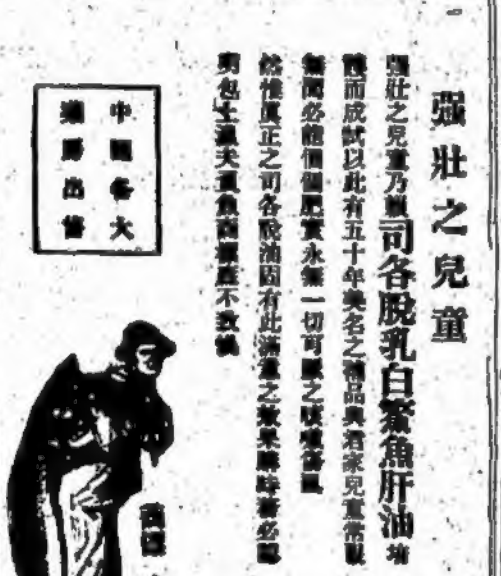 强壯之兒童
强壯之兒童乃服司各脫乳白鰵魚肝油培
體而成試以此有五十年美名之補品與君家兒童常服
無間必能個個肥實永無一切可厭之咳嗆傷風
然惟真正之司各脫油固有此滿意之效果購時務必認
明包上漁夫負魚商標庶不致悞
中國各大
藥房出售